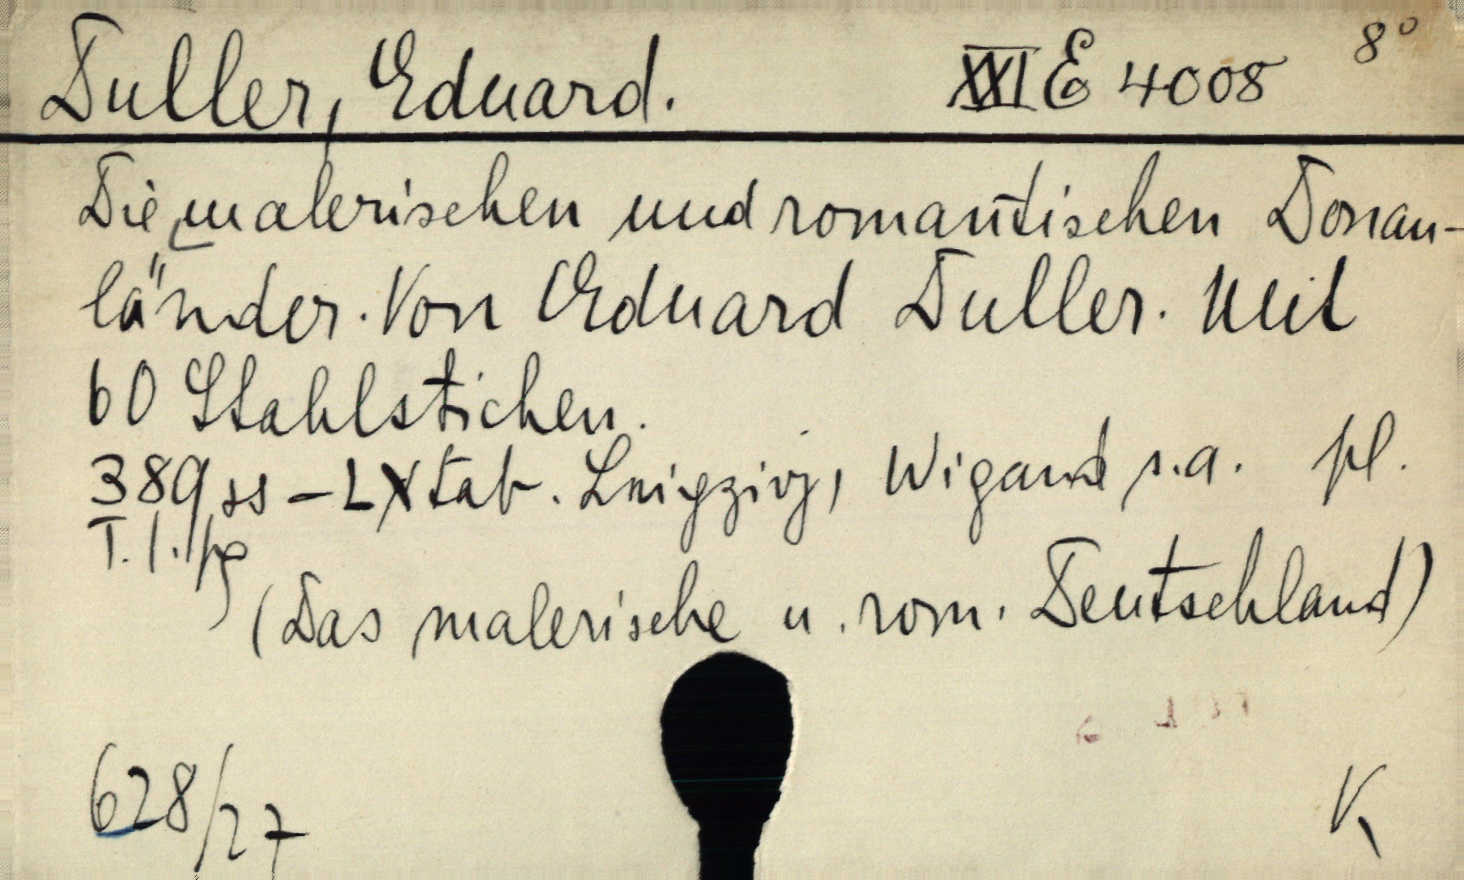 Duller, Eduard. XXI E 4008 8°
Die malerischen und romantischen Donau-
länder. Von Eduard Duller. Mit
60 Stahlstichen.
389 ss - LX tab. Leipzig, Wigand s.a. pl.
T. 1.
(Das malerische u. rom. Deutschland)
628/27
K